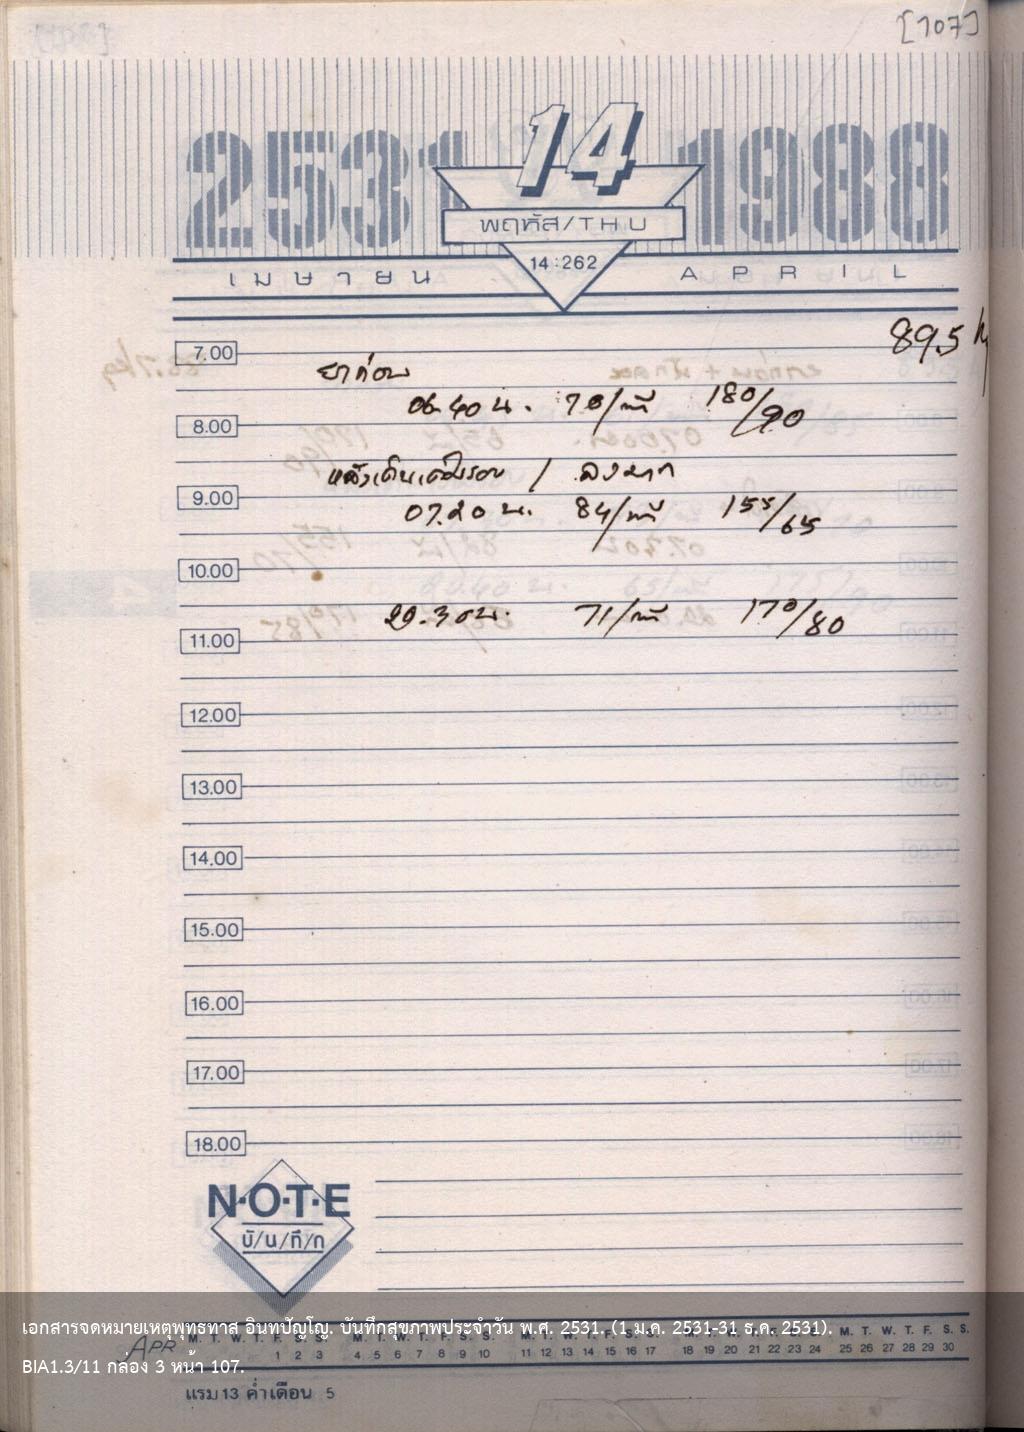 [107]
2531 14 1988
พฤหัส/THU
14:262
เมษายน APRIL
89.5
7.00
ยาก่อน
06.40 น. 70/นาที 180/90
8.00
/ ลงมาก
9.00
07.20 น. 84/นาที 155/65
10.00
20.30 น. 71/นาที 170/80
11.00
12.00
13.00
14.00
15.00
16.00
17.00
18.00
N·O·T·E
บั/น/ทึ/ก
เอกสารจดหมายเหตุพุทธทาส อินทปัญโญ. บันทึกสุขภาพประจำวัน พ.ศ. 2531. (1 ม.ค. 2531-31 ธ.ค. 2531).
APR M. T. W. T. F. S. S. M. T. W. T. F. S. S. M. T. W. T. F. S. S. M. T. W. T. F. S. S. M. T. W. T. F. S. S.
1 2 3 4 5 6 7 8 9 10 11 12 13 14 15 16 17 18 19 20 21 22 23 24 25 26 27 28 29 30
BIA1.3/11 กล่อง 3 หน้า 107.
แรม 13 ค่ำเดือน 5